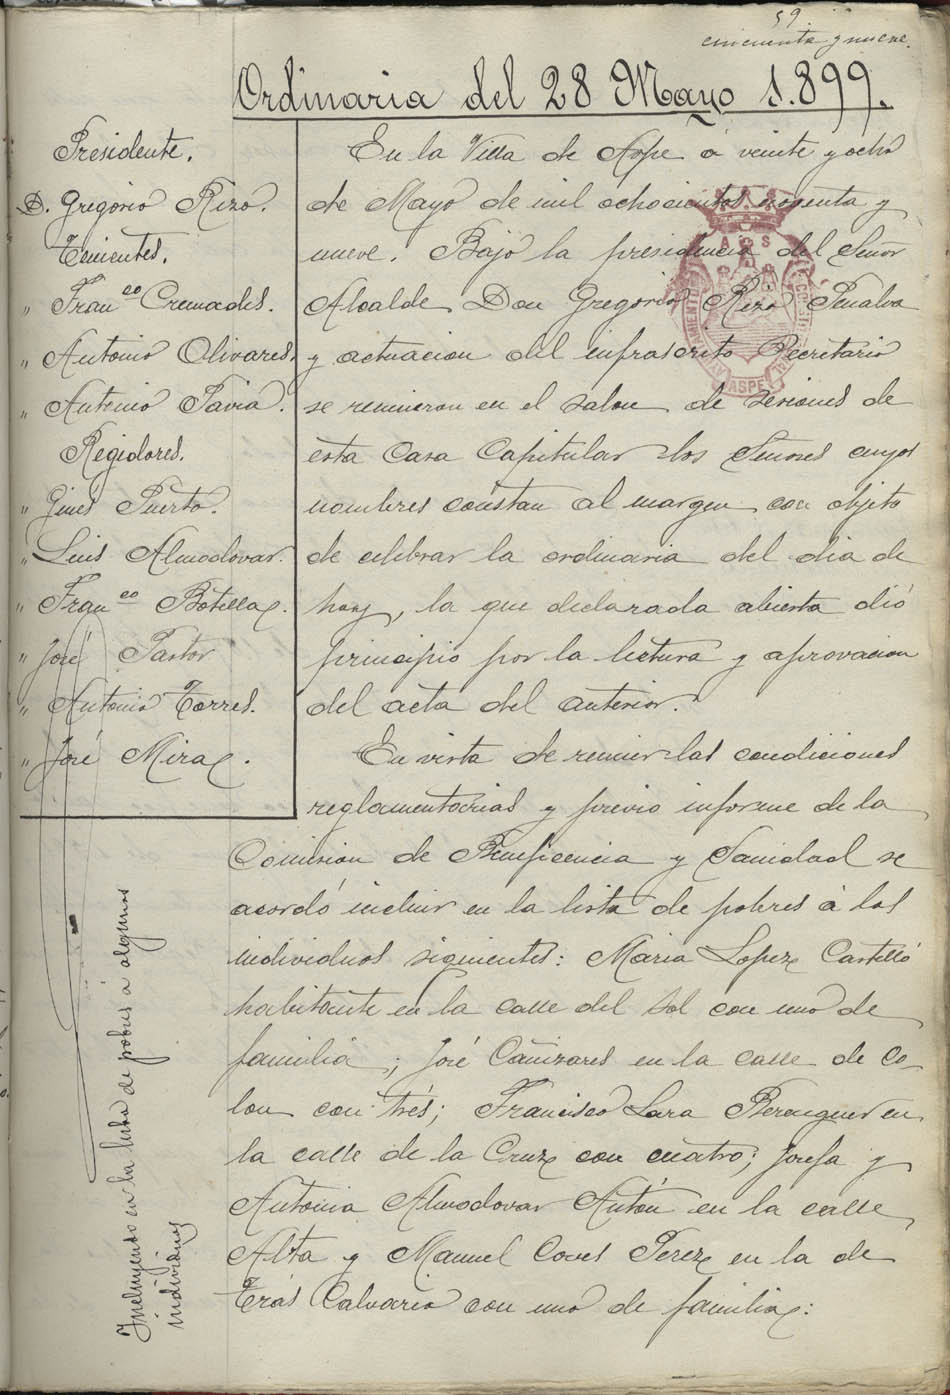 59.
cincuenta y nueve.
Ordinaria del 28 Mayo 1.899.
Presidente.
D. Gregorio Rizo.
Tenientes.
" Fran.co Cremades.
" Antonio Olivares.
" Antonio Pavia.
Regidores.
" Ginés Puerto.
" Luis Almodovar.
" Fran.co Botella.
" José Pastor
" Antonio Torres.
" José Mira.
En la Villa de Aspe á veinte y ocho
de Mayo de mil ochocientos noventa y
nueve. Bajo la presidencia del Señor
Alcalde Don Gregorio Rizo Penalva
y actuacion del infrascrito Secretario
se reunieron en el salon de sesiones de
esta Casa Capitular los Señores cuyos
nombres constan al margen con objeto
de celebrar la ordinaria del dia de
hoy, la que declarada abierta dió
principio por la lectura y aprovacion
del acta del anterior.
En vista de reunir las condiciones
reglamentarias y previo informe de la
Comision de Beneficencia y Sanidad se
acordó incluir en la lista de pobres á los
individuos siguientes: Maria Lopez Castelló
habitante en la calle del Sol con uno de
familia; José Cañizares en la calle de Co-
lon con trés; Francisco Lara Berenguer en
la calle de la Cruz con cuatro; Josefa y
Antonia Almodovar Antón en la calle
Alta y Manuel Coves Perez en la de
Trás Calvario con uno de familia:
Incluyendo en la lista de pobres á algunos
individuos
AYUNTAMIENTO CONSTITUCIONAL
ASPE